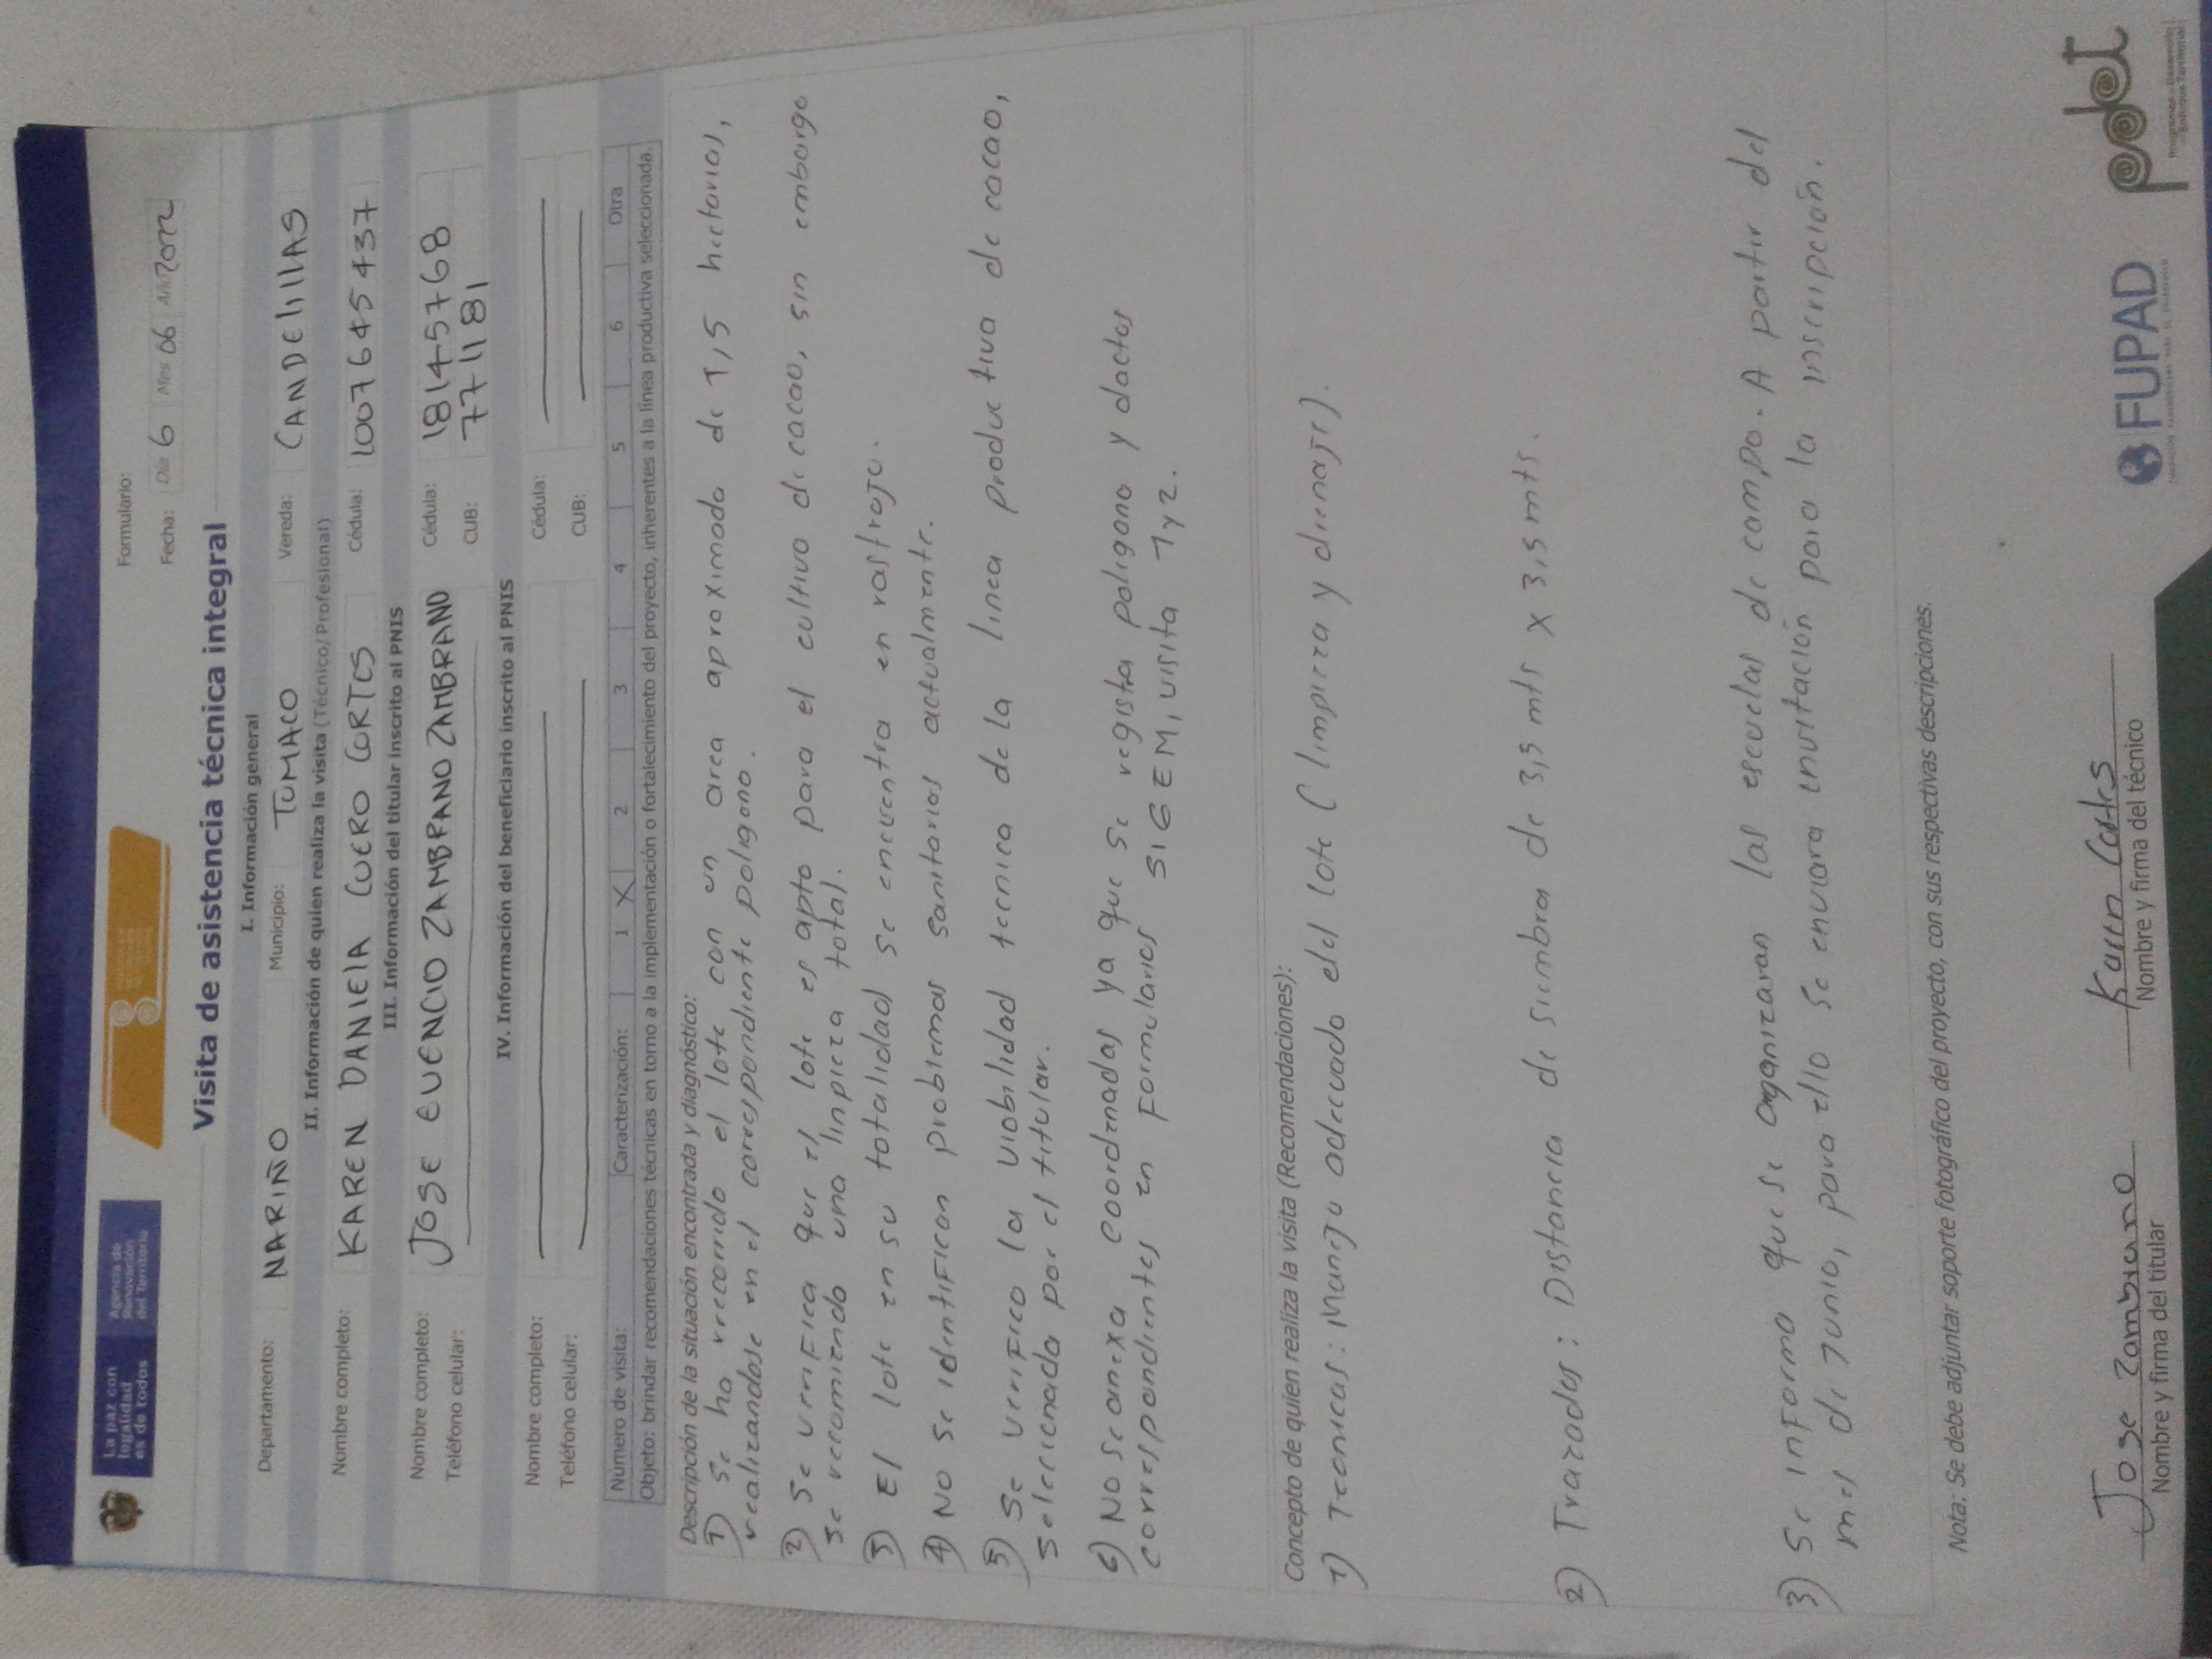 La paz con
legalidad
es de todos
Agencia de
Renovación
del Territorio
Formulario:
Fecha: Día 6 Mes 06 Año 2022
Visita de asistencia técnica integral
I. Información general
Departamento: NARIÑO Municipio: TUMACO Vereda: CANDELILLAS
II. Información de quien realiza la visita (Técnico/Profesional)
Nombre completo: KAREN DANIELA CUERO CORTES Cédula: 1007645437
III. Información del titular inscrito al PNIS
Nombre completo: JOSE EVENCIO ZAMBRANO ZAMBRANO Cédula: 18145768
Teléfono celular: CUB: 771181
IV. Información del beneficiario inscrito al PNIS
Nombre completo: Cédula:
Teléfono celular: CUB:
Número de visita: Caracterización: 1 X 2 3 4 5 6 Otra
Objeto: brindar recomendaciones técnicas en torno a la implementación o fortalecimiento del proyecto, inherentes a la línea productiva seleccionada.
Descripción de la situación encontrada y diagnóstico:
1) Se ha recorrido el lote con un area aproximada de 1,5 hectarias,
realizandose en el correspondiente poligono.
2) Se verifica que el lote es apto para el cultivo de cacao, sin embargo
se recomienda una linpieza total.
3) El lote en su totalidad se encuentra en rastrojo.
4) No se identifican problemas sanitarios actualmente.
5) Se verifico la viabilidad tecnica de la linea productiva de cacao,
seleccionada por el titular.
6) No se anexa coordenadas ya que se registra poligono y dactos
correspondientes en formularios SIGEM, visita 1 y 2.
Concepto de quien realiza la visita (Recomendaciones):
1) Tecnicas: Manejo adecuado del lote (limpieza y drenaje).
2) Trazados: Distancia de siembra de 3,5 mts x 3,5 mts.
3) Se informa que se organizaran las escuelas de campo. A partir del
mes de Junio, para ello se enviara invitación para la inscripción.
Nota: Se debe adjuntar soporte fotográfico del proyecto, con sus respectivas descripciones.
Jose Zambrano Karen Cortes
Nombre y firma del titular Nombre y firma del técnico
FUPAD
pdet
Programas de Desarrollo
con Enfoque Territorial